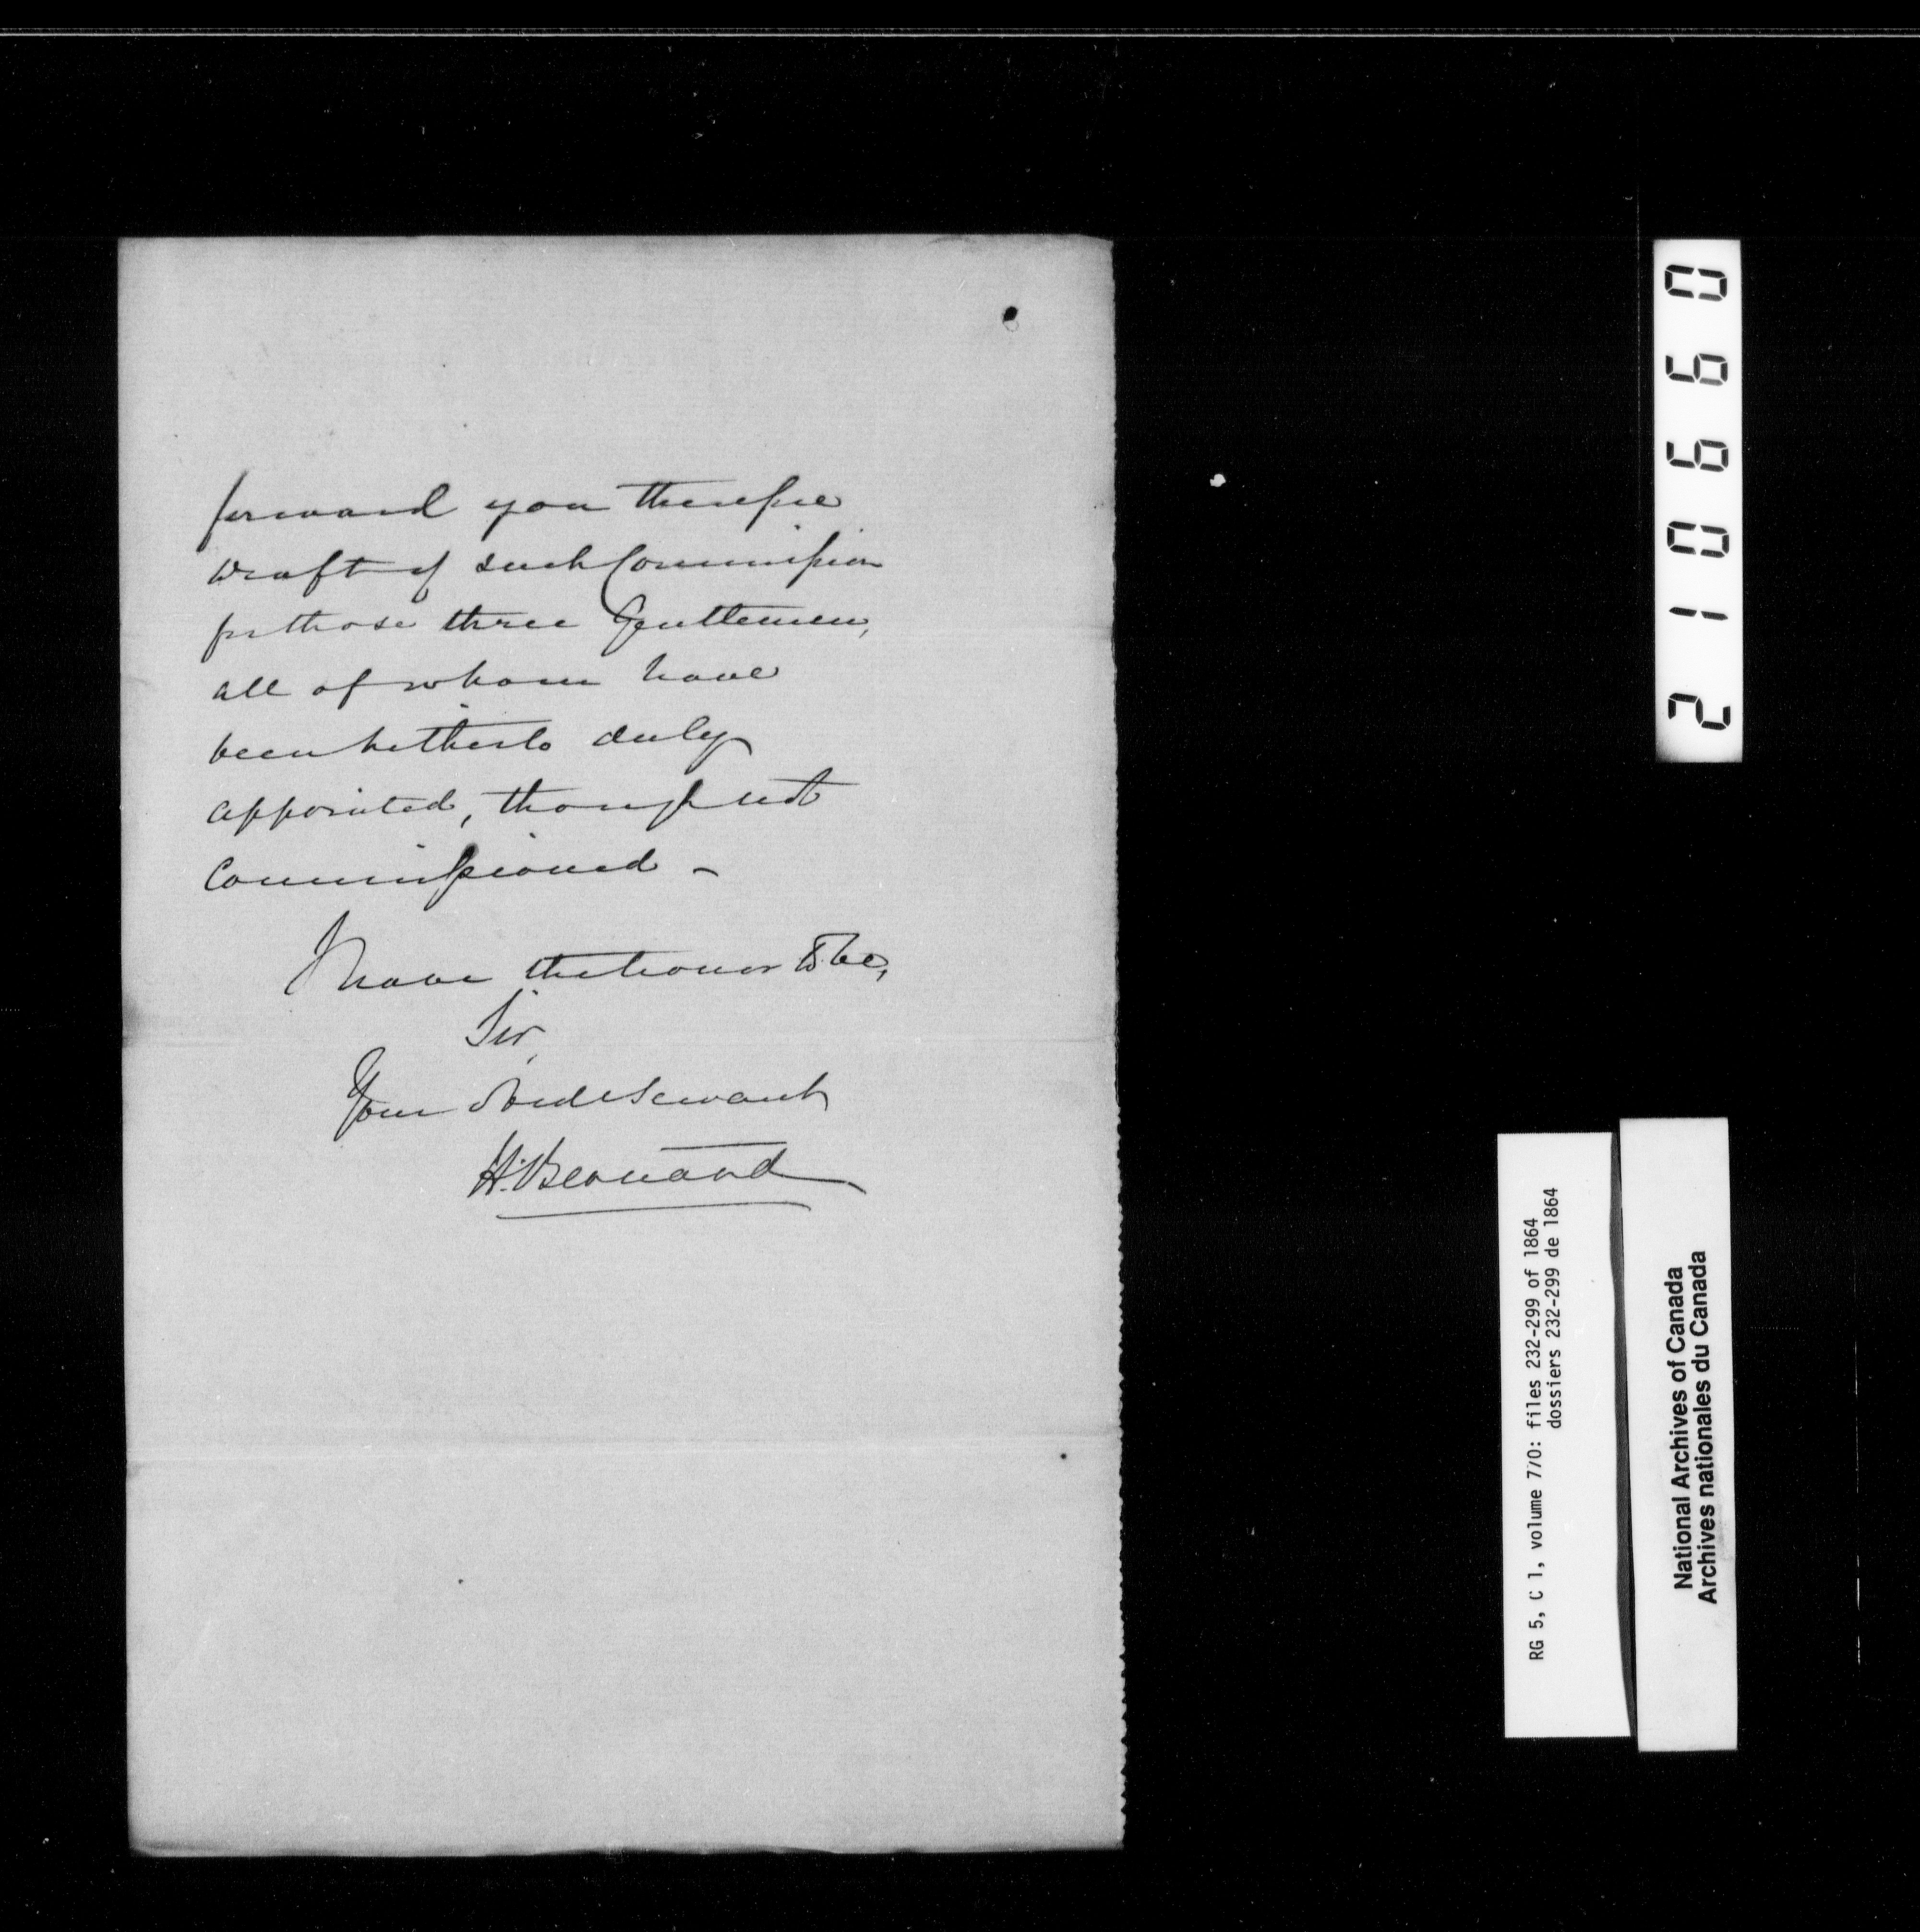 forward you therefore
draft of such Commission
for those three Gentlemen,
all of whom have
been hitherto duly
appointed, though not
Commissioned –
I have the honor to be,
Sir,
Your Obed Servant
H. Bernard
210660
RG 5, C 1, volume 770: files 232-299 of 1864
dossiers 232-299 de 1864
National Archives of Canada
Archives nationales du Canada